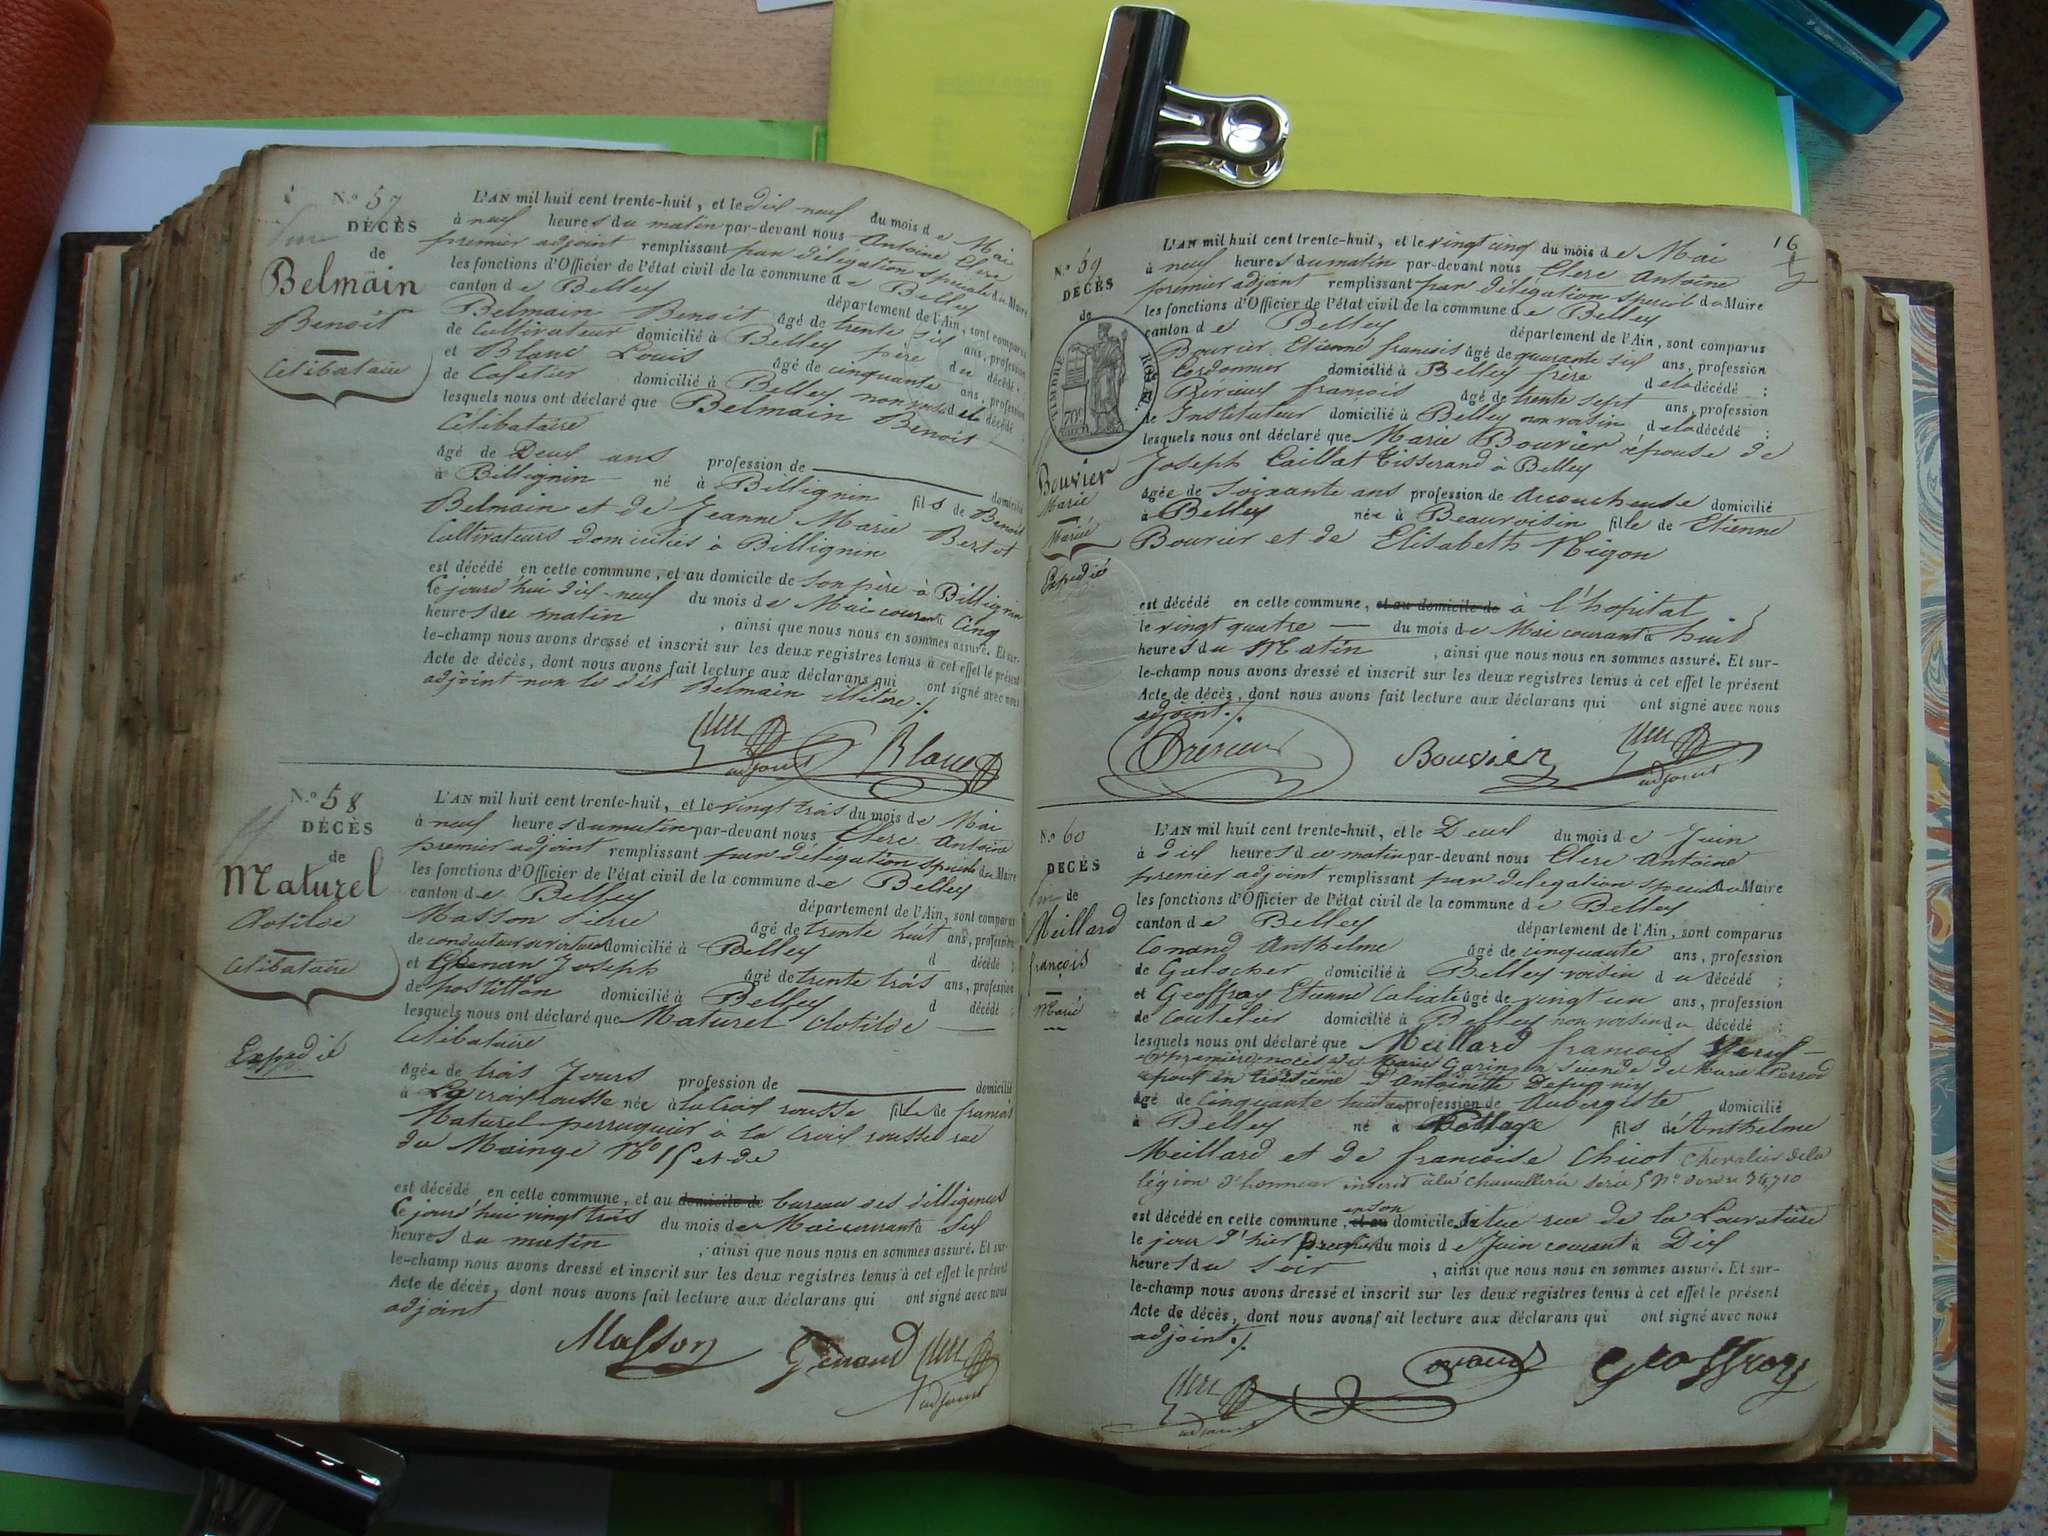 N.º 57
DÉCÈS
de
Belmain
Benoit
Célibataire
L'AN mil huit cent trente-huit, et le dix neuf du mois de Mai
à neuf heures du matin par-devant nous Antoine Clerc
premier adjoint remplissant par délégation speciale du Maire
les fonctions d'Officier de l'état civil de la commune de Belley
canton de Belley département de l'Ain, sont comparus
Belmain Benoit âgé de trente six ans, profession
de Cultivateur domicilié à Belley père du décédé,
et Blanc Louis âgé de cinquante ans, profession
de Cafetier domicilié à Belley non voisin d décédé
lesquels nous ont déclaré que Belmain Benoit
Célibataire
âgé de Deux ans profession de domicilié
à Billignin né à Billignin fils de Benoit
Belmain et de Jeanne Marie Bertet
Cultivateurs domiciliés à Billignin
est décédé en cette commune, et au domicile de son père à Billignin
le jourd'hui dix-neuf du mois de Mai courant à cinq
heures du matin , ainsi que nous nous en sommes assuré. Et sur-
le-champ nous avons dressé et inscrit sur les deux registres tenus à cet effet le présent
Acte de décès, dont nous avons fait lecture aux déclarans qui ont signé avec nous
adjoint non le dit Belmain illitéré ./.
adjoint Blanc
N.º 58
DÉCÈS
de
Maturel
Clotilde
Célibataire
Expédié
L'AN mil huit cent trente-huit, et le vingt trois du mois de Mai
à neuf heures du matin par-devant nous Clerc Antoine
premier adjoint remplissant par délégation spéciale du Maire
les fonctions d'Officier de l'état civil de la commune de Belley
canton de Belley département de l'Ain, sont comparus
Masson Pierre âgé de trente huit ans, profession
de conducteur de voitures domicilié à Belley d décédé ;
et Joseph âgé de trente trois ans, profession
de postillon domicilié à Belley d décédé ;
lesquels nous ont déclaré que Maturel Clotilde
Célibataire
âgée de trois Jours profession de domicilié
à La croix rousse née à la croix rousse fille de francois
Maturel perruquier à la croix rousse rue
du No 15 et de
est décédé en cette commune, et au domicile de bureau des dilligences
le jourd'hui vingt trois du mois de Mai courant à six
heures du matin , ainsi que nous nous en sommes assuré. Et sur-
le-champ nous avons dressé et inscrit sur les deux registres tenus à cet effet le présent
Acte de décès, dont nous avons fait lecture aux déclarans qui ont signé avec nous
adjoint
Masson Génand adjoint
16
N.º 59
DÉCÈS
de
TIMBRE ROYAL
70c
Bouvier
Marie
Mariée
Expédié
L'AN mil huit cent trente-huit, et le vingt cinq du mois de Mai
à neuf heures du matin par-devant nous Clerc Antoine
premier adjoint remplissant par délégation special du Maire
les fonctions d'Officier de l'état civil de la commune de Belley
canton de Belley département de l'Ain, sont comparus
Bouvier Etienne francois âgé de quarante six ans, profession
Cordonnier domicilié à Belley frère de la décédé ;
francois âgé de trente sept ans, profession
de Instituteur domicilié à Belley non voisin de la décédé ;
lesquels nous ont déclaré que Marie Bouvier épouse de
Joseph Caillat Tisserand à Belley
âgée de soixante ans profession de accoucheuse domicilié
à Belley née à Beauvoisin fille de Etienne
Bouvier et de Elisabeth Nigon
est décédé en cette commune, et au domicile de à l'hopital
le vingt quatre du mois de Mai courant à huit
heures du Matin , ainsi que nous nous en sommes assuré. Et sur-
le-champ nous avons dressé et inscrit sur les deux registres tenus à cet effet le présent
Acte de décès, dont nous avons fait lecture aux déclarans qui ont signé avec nous
adjoint ./.
Bouvier adjoint
N.º 60
DÉCÈS
de
Meillard
francois
Marié
L'AN mil huit cent trente-huit, et le Deux du mois de Juin
à dix heures du matin par-devant nous Clerc Antoine
premier adjoint remplissant par délégation speciale du Maire
les fonctions d'Officier de l'état civil de la commune de Belley
canton de Belley département de l'Ain, sont comparus
Conand Anthelme âgé de cinquante ans, profession
de Galocher domicilié à Belley voisin du décédé ;
et Geoffray Etienne Calixte âgé de vingt un ans, profession
de Coutelier domicilié à Belley non voisin du décédé ;
lesquels nous ont déclaré que Meillard francois Veuf
en première noces de Marie Garin en seconde de Marie Perrod
époux en troisième d'Antoinette
âgé de cinquante huit ans profession de Aubergiste domicilié
à Belley né à fils de Anthelme
Meillard et de francoise Chicot Chevalier de la
légion d'honneur inscrit à la Chancellerie série 5 No d'ordre 34,710
est décédé en cette commune, et au en son domicile situé rue de la
le jour d'hier premier du mois de Juin courant à Dix
heures du soir , ainsi que nous nous en sommes assuré. Et sur-
le-champ nous avons dressé et inscrit sur les deux registres tenus à cet effet le présent
Acte de décès, dont nous avons fait lecture aux déclarans qui ont signé avec nous
adjoint ./.
adjoint Conand Geoffray